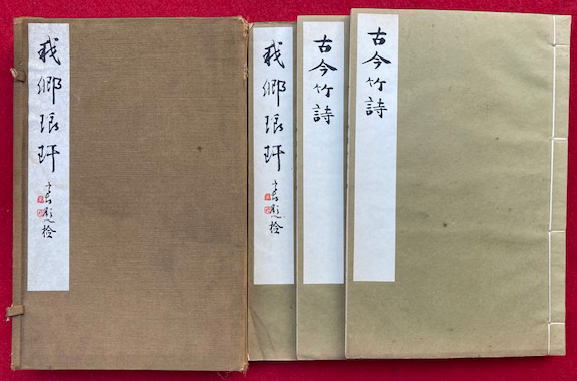 我鄉琅玕
我鄉琅玕
古今竹詩
古今竹詩